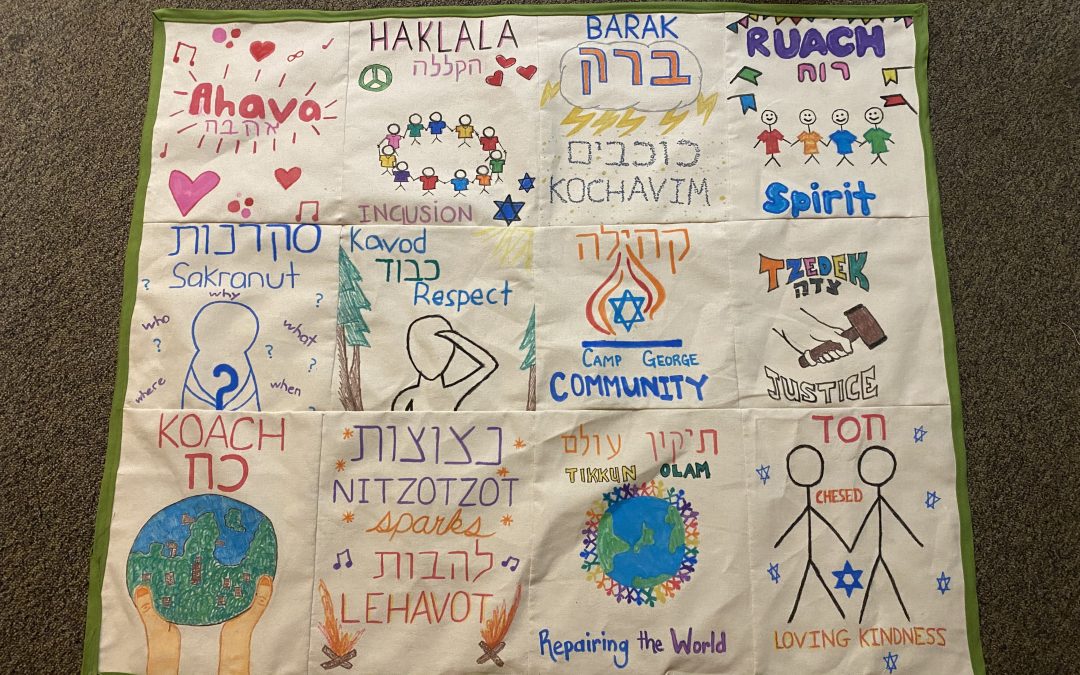 Ahava
אהבה
HAKLALA
הקללה
INCLUSION
BARAK
ברק
כוכבים
KOCHAVIM
RUACH
רוח
Spirit
סקרנות
Sakranut
why
who
what
where
when
?
Kavod
כבוד
Respect
קהילה
CAMP GEORGE
COMMUNITY
TZEDEK
צדה
JUSTICE
KOACH
כח
נצוצות
NITZOTZOT
sparks
להבות
LEHAVOT
תיקון עולם
TIKKUN OLAM
Repairing the World
חסד
CHESED
LOVING KINDNESS